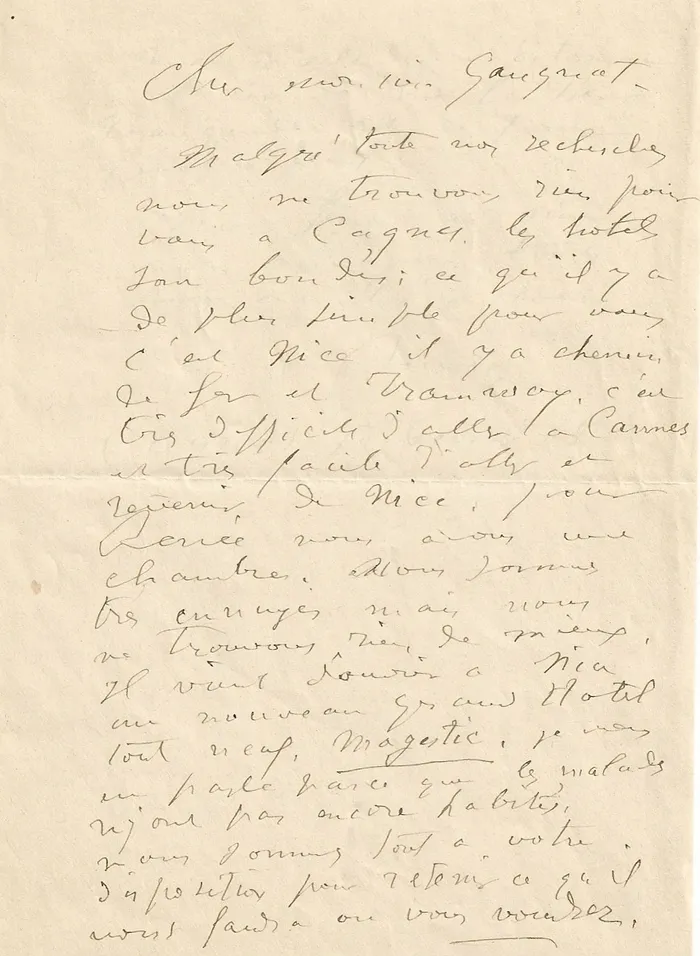 Cher monsieur Gangnat
Malgré toute nos recherches
nous ne trouvons rien pour
vous a Cagnes. les hotels
son bondés; ce qu'il y a
de plus simple pour vous
c'est Nice il y a chemin
de fer et Tramway. c'est
très difficile d'aller a Cannes
et très facile d'aller et
revenir de Nice. pour
Renée nous avons une
chambre. Nous sommes
très ennuyés mais nous
ne trouvons rien de mieux.
Il vient d'ouvrir a Nice
un nouveau grand Hotel
tout neuf. Magestic. je vous
en parle parce que les malades
n'y ont pas encore habités.
nous sommes tout a votre
disposition pour retenir ce qu'il
vous faudra ou vous voudrez.